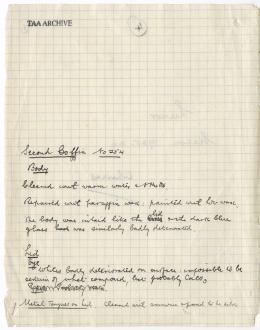 TAA ARCHIVE
4
Second Coffin No 254
Body
Cleaned with warm water & NH4OH
Repaired with paraffin wax: painted with hot wax.
The body was inlaid like the lid with dark blue
glass and was similarly badly deteriorated.
Lid
Eye
Whites badly deteriorated on surface: impossible to be
certain of what composed, but probably CaCO3
Metal Tongues on lid. Cleaned with ammonia & found to be silver